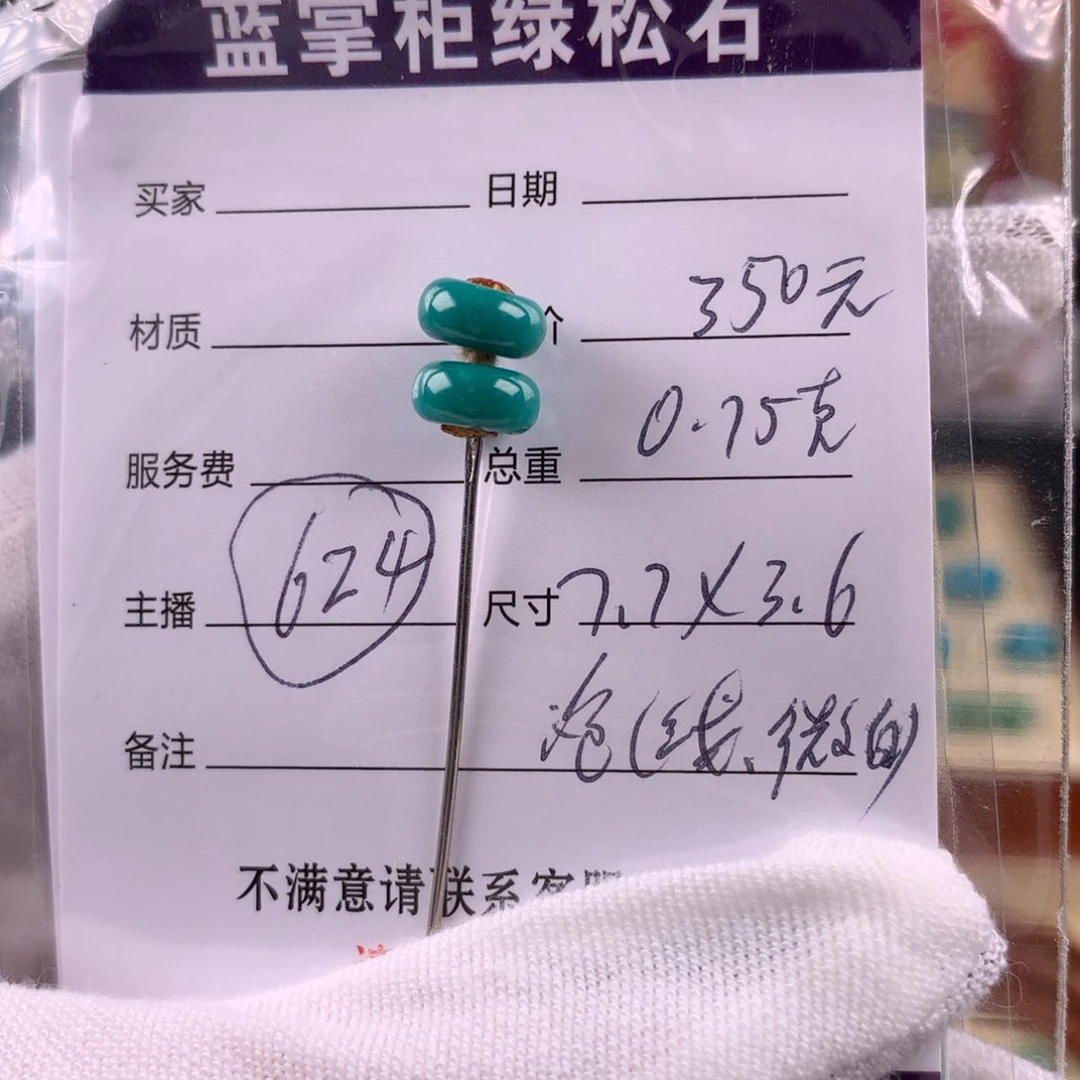 蓝掌柜绿松石
买家 日期
材质 价 350元
服务费 总重 0.75克
主播 624 尺寸 7.7X3.6
备注 微白
不满意请联系客服